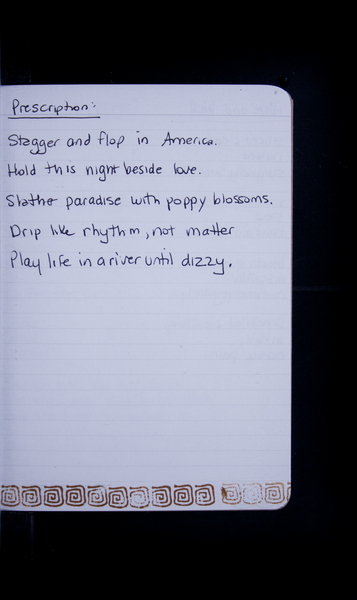 Prescription:
Stagger and flop in America.
Hold this night beside love.
Slather paradise with poppy blossoms.
Drip like rhythm, not matter
Play life in a river until dizzy.